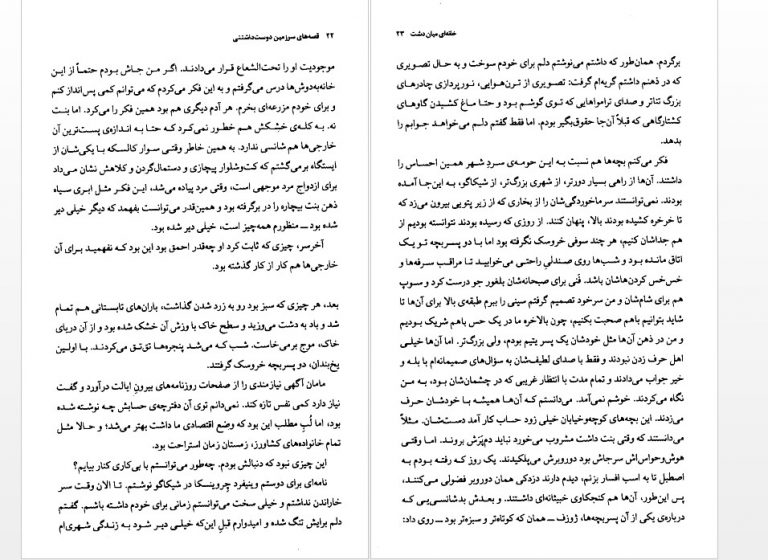 ۲۲ قصه‌های سرزمین دوست‌داشتنی
موجودیت او را تحت‌الشعاع قرار می‌دادند. اگر من جاش بودم حتماً از این
خانه‌به‌دوش‌ها درس می‌گرفتم و به این فکر می‌کردم که می‌توانم کمی پس‌انداز کنم
و برای خودم مزرعه‌ای بخرم. هر آدم دیگری هم بود همین فکر را می‌کرد. اما بنت
نه. به کله‌ی خشکش هم خطور نمی‌کرد که حتا به اندازه‌ی پست‌ترین آن
خارجی‌ها هم شانسی ندارد. به همین خاطر وقتی سوار کالسکه با یکی‌شان از
ایستگاه برمی‌گشتم که کت‌وشلوار پیچازی و دستمال‌گردن و کلاهش نشان می‌داد
برای ازدواج مرد موجهی است، وقتی مرد پیاده می‌شد، این فکر مثل ابری سیاه
ذهن بنت بیچاره را در برگرفته بود و همین‌قدر می‌توانست بفهمد که دیگر خیلی دیر
شده بود ــ منظورم همه‌چیز است، خیلی دیر شده بود.
آخرسر، چیزی که ثابت کرد او چه‌قدر احمق بود این بود که نفهمید برای آن
خارجی‌ها هم کار از کار گذشته بود.
بعد، هر چیزی که سبز بود رو به زرد شدن گذاشت، باران‌های تابستانی هم تمام
شد و باد به دشت می‌وزید و سطح خاک با وزش آن خشک شده بود و از آن دریای
خاک، موج برمی‌خاست. شب که می‌شد پنجره‌ها تق‌تق می‌کردند. با اولین
یخ‌بندان، دو پسربچه خروسک گرفتند.
مامان آگهی نیازمندی را از صفحات روزنامه‌های بیرون ایالت درآورد و گفت
نیاز دارد کمی نفس تازه کند. نمی‌دانم توی آن دفترچه‌ی حسابش چه نوشته شده
بود، اما لُبِ مطلب این بود که وضع اقتصادی ما داشت بهتر می‌شد؛ و حالا مثل
تمام خانواده‌های کشاورز، زمستان زمان استراحت بود.
این چیزی نبود که دنبالش بودم. چه‌طور می‌توانستم با بی‌کاری کنار بیایم؟
نامه‌ای برای دوستم وینیفرد چروینسکا در شیکاگو نوشتم. تا الان وقت سر
خاراندن نداشتم و خیلی سخت می‌توانستم زمانی برای خودم داشته باشم. گفتم
دلم برایش تنگ شده و امیدوارم قبل این‌که خیلی دیر شود به زندگی شهری‌ام
خانه‌ای میان دشت ۲۳
برگردم. همان‌طور که داشتم می‌نوشتم دلم برای خودم سوخت و به حال تصویری
که در ذهنم داشتم گریه‌ام گرفت: تصویری از ترن‌هوایی، نورپردازی چادرهای
بزرگ تئاتر و صدای تراموا‌هایی که توی گوشم بود و حتا ماغ کشیدن گاوهای
کشتارگاهی که قبلاً آن‌جا حقوق‌بگیر بودم. اما فقط گفتم دلم می‌خواهد جوابم را
بدهد.
فکر می‌کنم بچه‌ها هم نسبت به این حومه‌ی سردِ شهر همین احساس را
داشتند. آن‌ها از راهی بسیار دورتر، از شهری بزرگ‌تر، از شیکاگو، به این‌جا آمده
بودند. نمی‌توانستند سرماخوردگی‌شان را از بخاری که از زیر پتویی بیرون می‌زد که
تا خرخره کشیده بودند بالا، پنهان کنند. از روزی که رسیده بودند نتوانسته بودیم از
هم جداشان کنیم، هر چند سوفی خروسک نگرفته بود اما با دو پسربچه تو یک
اتاق مانده بود و شب‌ها روی صندلیِ راحتی می‌خوابید تا مراقب سرفه‌ها و
خس‌خس کردن‌هاشان باشد. فَنی برای صبحانه‌شان بلغور جو درست کرد و سوپ
هم برای شام‌شان و من سرخود تصمیم گرفتم سینی را ببرم طبقه‌ی بالا برای آن‌ها تا
شاید بتوانیم باهم صحبت بکنیم، چون بالاخره ما در یک حس باهم شریک بودیم
و من در ذهن آن‌ها مثل خودشان یک پسر یتیم بودم، ولی بزرگ‌تر. اما آن‌ها خیلی
اهل حرف زدن نبودند و فقط با صدای لطیف‌شان به سؤال‌های صمیمانه‌ام با بله و
خیر جواب می‌دادند و تمام مدت با انتظار غریبی که در چشمان‌شان بود، به من
نگاه می‌کردند. خوشم نمی‌آمد. می‌دانستم که آن‌ها همیشه با خودشان حرف
می‌زدند. این بچه‌های کوچه‌وخیابان خیلی زود حساب کار آمد دست‌شان. مثلاً
می‌دانستند که وقتی بنت داشت مشروب می‌خورد نباید دم‌پَرش بروند. اما وقتی
هوش‌وحواس‌اش سرجاش بود دوروبرش می‌پلکیدند. یک روز که رفته بودم به
اصطبل تا به اسب افسار بزنم، دیدم دارند دزدکی همان دوروبر فضولی می‌کنند،
پس این‌طور، آن‌ها هم کنجکاوی خبیثانه‌ای داشتند. و بعدش بدشانسی‌یی که
درباره‌ی یکی از آن پسربچه‌ها، ژوزف ــ همان که کوتاه‌تر و سبزه‌تر بود ــ روی داد: